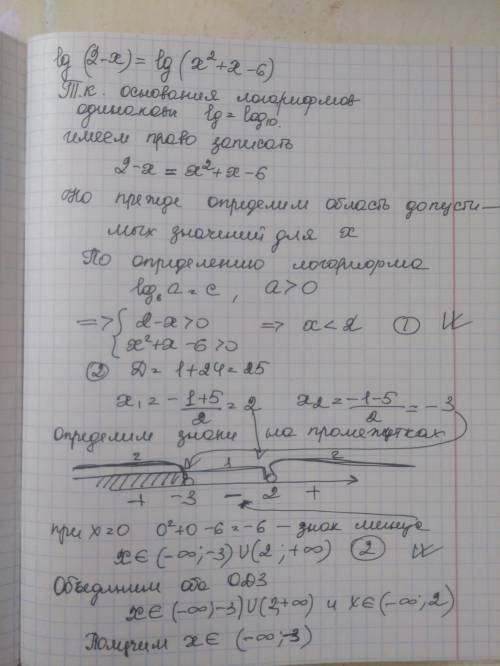 lg (2-x) = lg (x²+x-6)
Т.к. основания логарифмов
одинаковы lg = log₁₀.
имеем право записать
2-x = x²+x-6
Но прежде определим область допусти-
мых значений для x
По определению логарифма
log_в a = c, a>0
=> { 2-x>0 => x<2 ①
{ x²+x-6>0
② D = 1+24=25
x₁ = -1+5/2 = 2 x₂ = -1-5/2 = -3
Определим знаки на промежутках
2 1 2
+ -3 - 2 +
при x=0 0²+0-6=-6 - знак минус
x∈(-∞;-3)∪(2;+∞) ②
Объединим оба ОДЗ
x∈(-∞)-3)∪(2;+∞) и x∈(-∞;2)
Получим x∈ (-∞;-3)